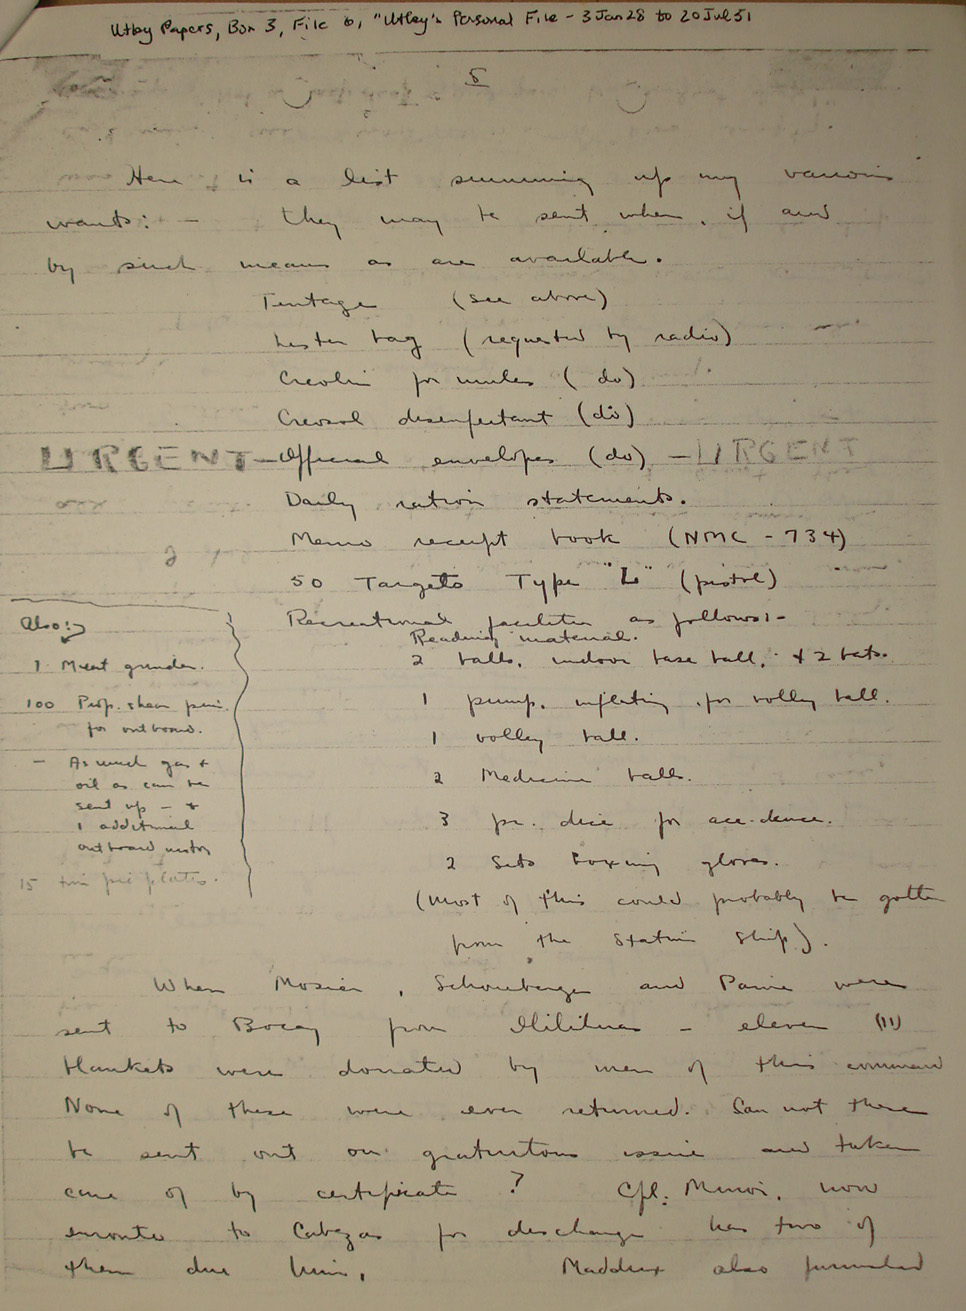 Utley Papers, Box 3, File 6, "Utley's Personal File - 3 Jan 28 to 20 Jul 31
5
Here is a list summing up my various
wants: - They may be sent when, if and
by such means as are available.
Tentage (see above)
Lister bag (requested by radio)
Creolin for mules (do)
Creosol disenfectant (do)
URGENT - Official envelopes (do) - URGENT
Daily ration statements.
Memo receipt book (NMC - 734)
50 Targets Type "L" (pistol)
Recreational facilities as follows:-
Reading material.
2 balls, indoor base ball, + 2 bats.
1 pump, inflating, for volley ball.
1 volley ball.
2 Medicine balls.
3 pr. dice for ace-deuce.
2 Sets boxing gloves.
(Most of this could probably be gotten
from the Station Ship).
Also:-
1 Meat grinder.
100 Prop. shear pins
for outboard.
- As much gas +
oil as can be
sent up - +
1 additional
outboard motor
15 tin pie plates.
When Mosier, Schoneberger and Paine were
sent to Bocay from Kililwas - eleven (11)
blankets were donated by men of this command
None of these were ever returned. Can not these
be sent out on gratuitous issue and taken
care of by certificate? Cpl. Minoi, now
enroute to Cabezas for discharge has two of
them due him, Maddux also furnished